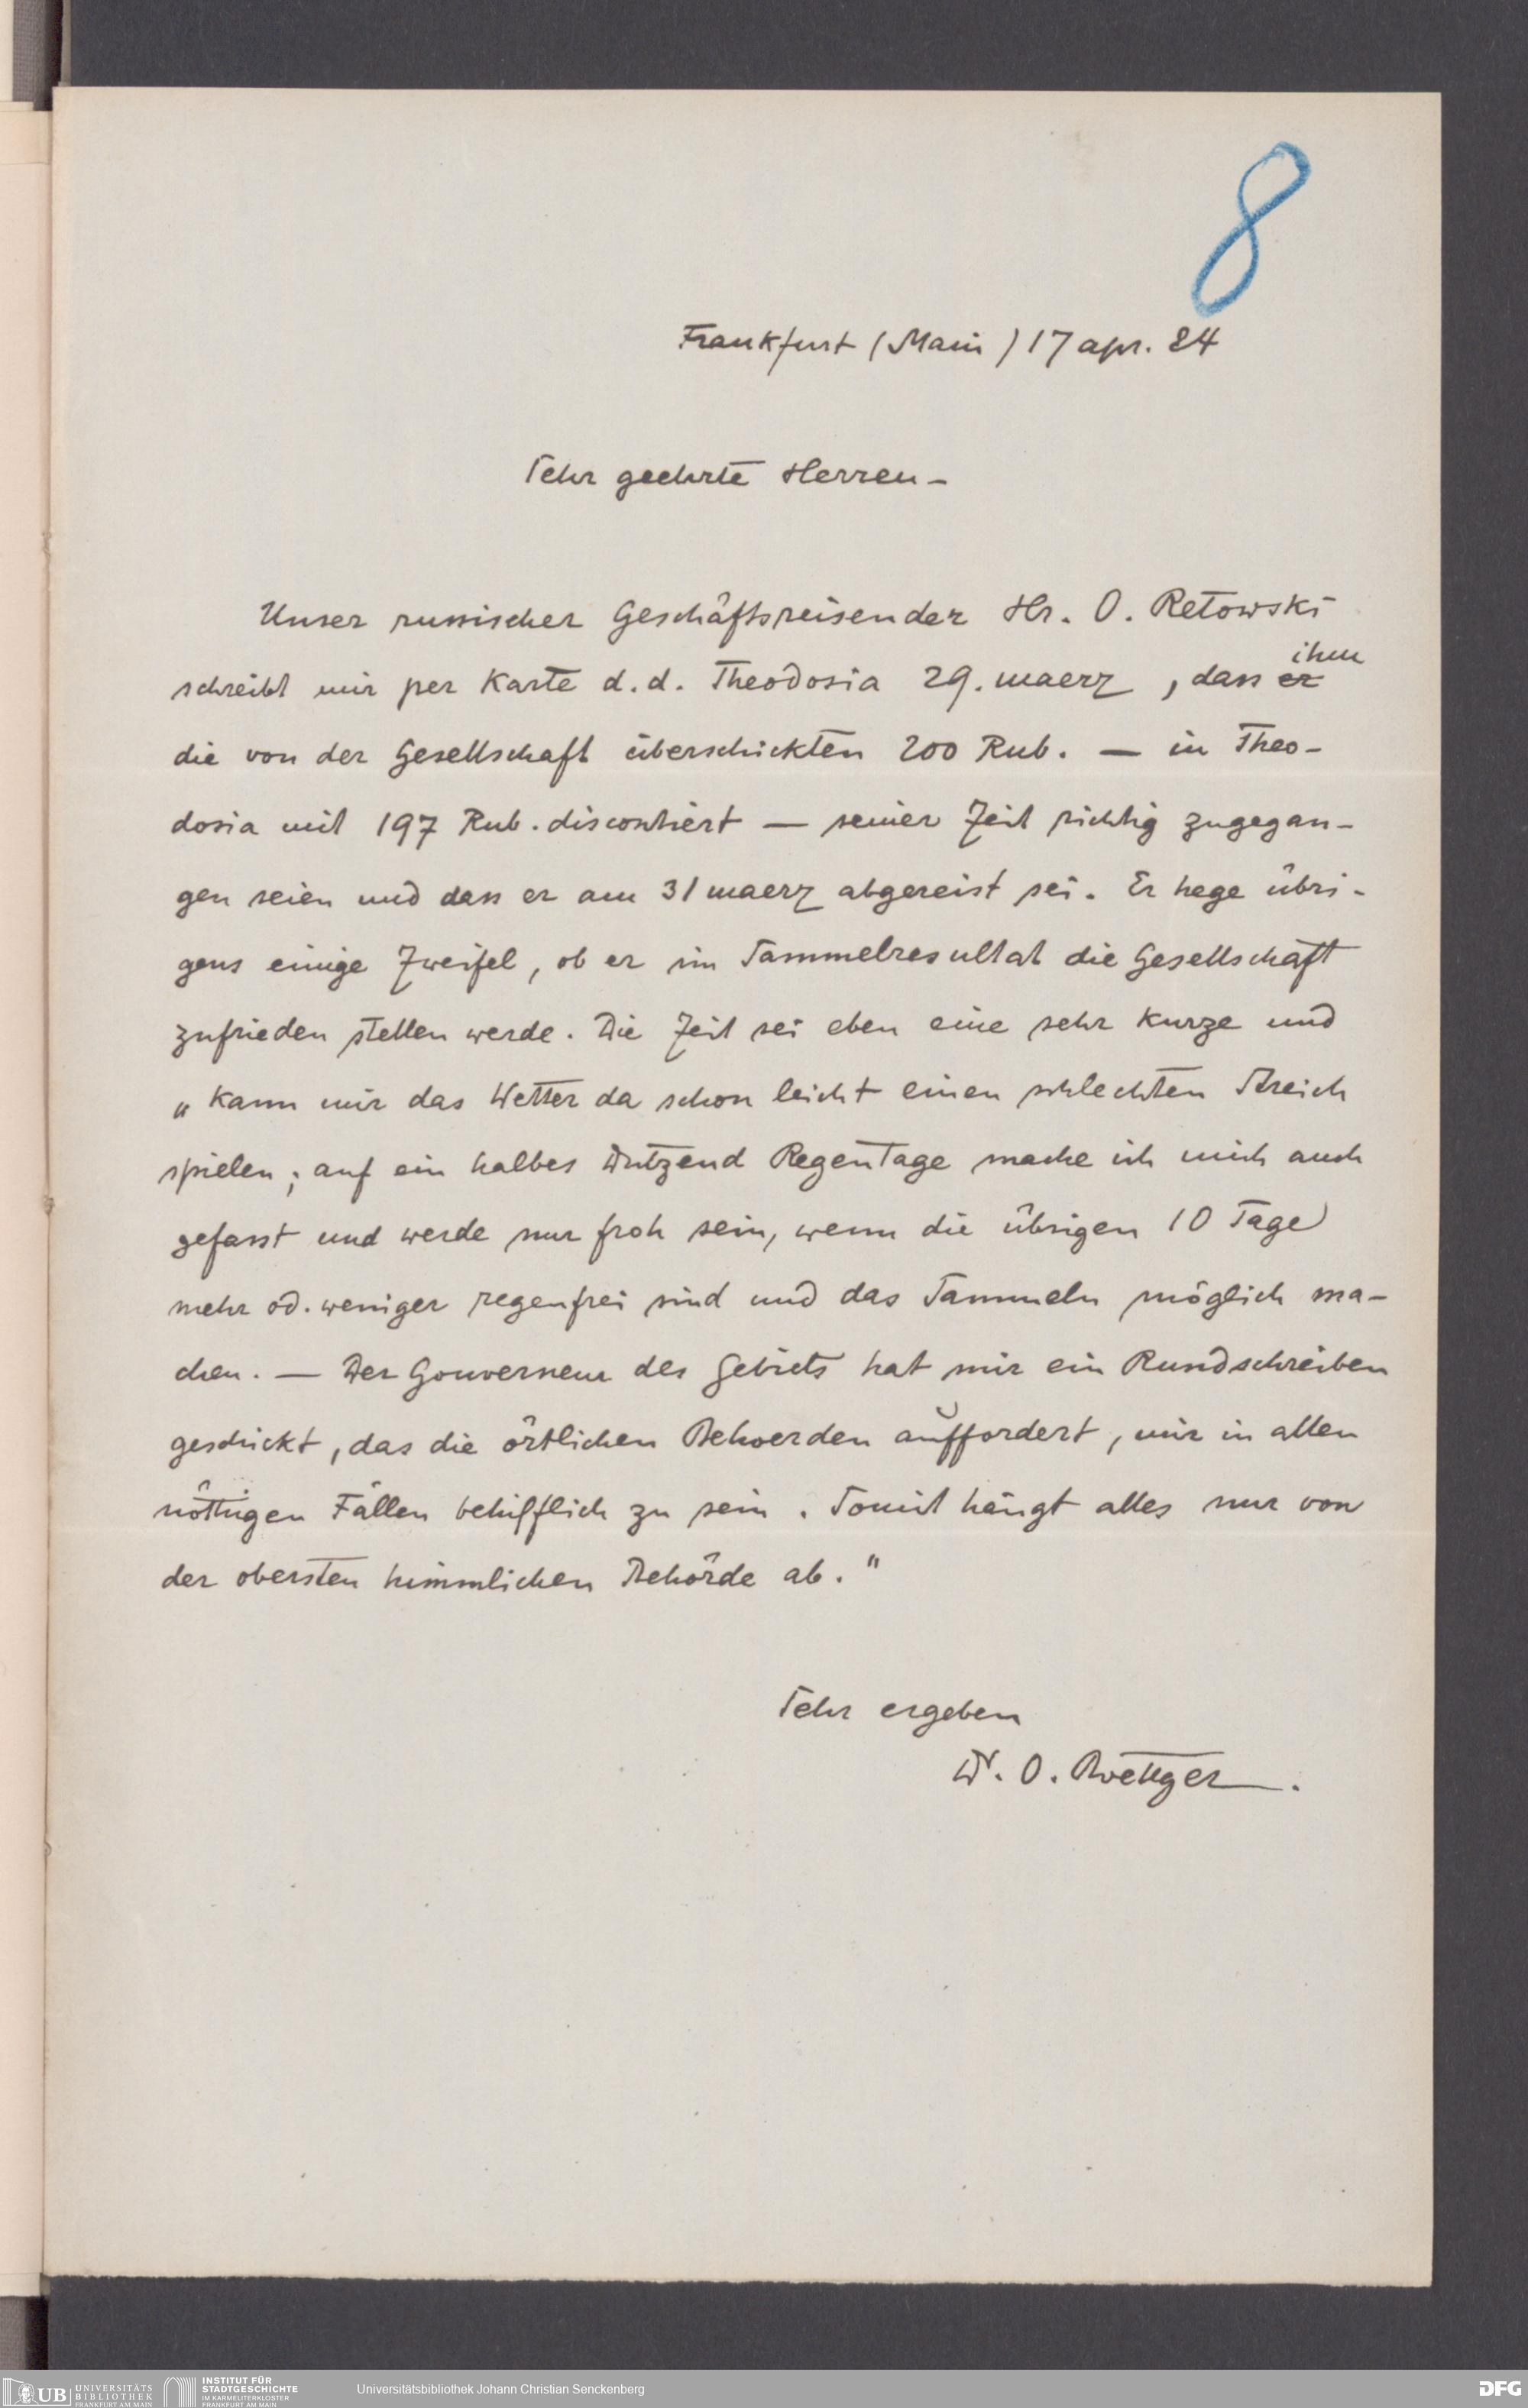 8
Frankfurt (Main) 17 apr. 84
Sehr geehrte Herren –
Unser russischer Geschäftsreisender Hr. O. Retowski
ihm
schreibt mir per Karte d. d. Theodosia 29. maerz, dass er
die von der Gesellschaft überschickten 200 Rub. — in Theo-
dosia mit 197 Rub. discontiert — seiner Zeit richtig zugegan-
gen seien und dass er am 31 maerz abgereist sei. Er hege übri-
gens einige Zweifel, ob er im Sammelresultat die Gesellschaft
zufrieden stellen werde. Die Zeit sei eben eine sehr kurze und
„kann mir das Wetter da schon leicht einen schlechten Streich
spielen; auf ein halbes Dutzend Regentage mache ich mich auch
gefasst und werde nur froh sein, wenn die übrigen 10 Tage
mehr od. weniger regenfrei sind und das Sammeln möglich ma-
chen. — Der Gouverneur des Gebiets hat mir ein Rundschreiben
geschickt, das die örtlichen Behoerden auffordert, mir in allen
nöthigen Fällen behilflich zu sein. Somit hängt alles nur von
der obersten himmlichen Behörde ab."
Sehr ergeben
Dr. O. Boettger.
UB UNIVERSITÄTS
BIBLIOTHEK
FRANKFURT AM MAIN
INSTITUT FÜR
STADTGESCHICHTE
IM KARMELITERKLOSTER
FRANKFURT AM MAIN
Universitätsbibliothek Johann Christian Senckenberg
DFG